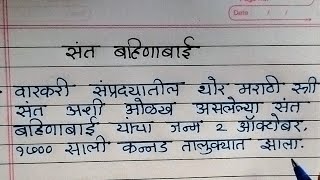 संत बहिणाबाई
वारकरी संप्रदयातील थोर मराठी स्त्री
संत अशी ओळख असलेल्या संत
बहिणाबाई यांचा जन्म २ ऑक्टोबर,
१७०० साली कन्नड तालुक्यात झाला.